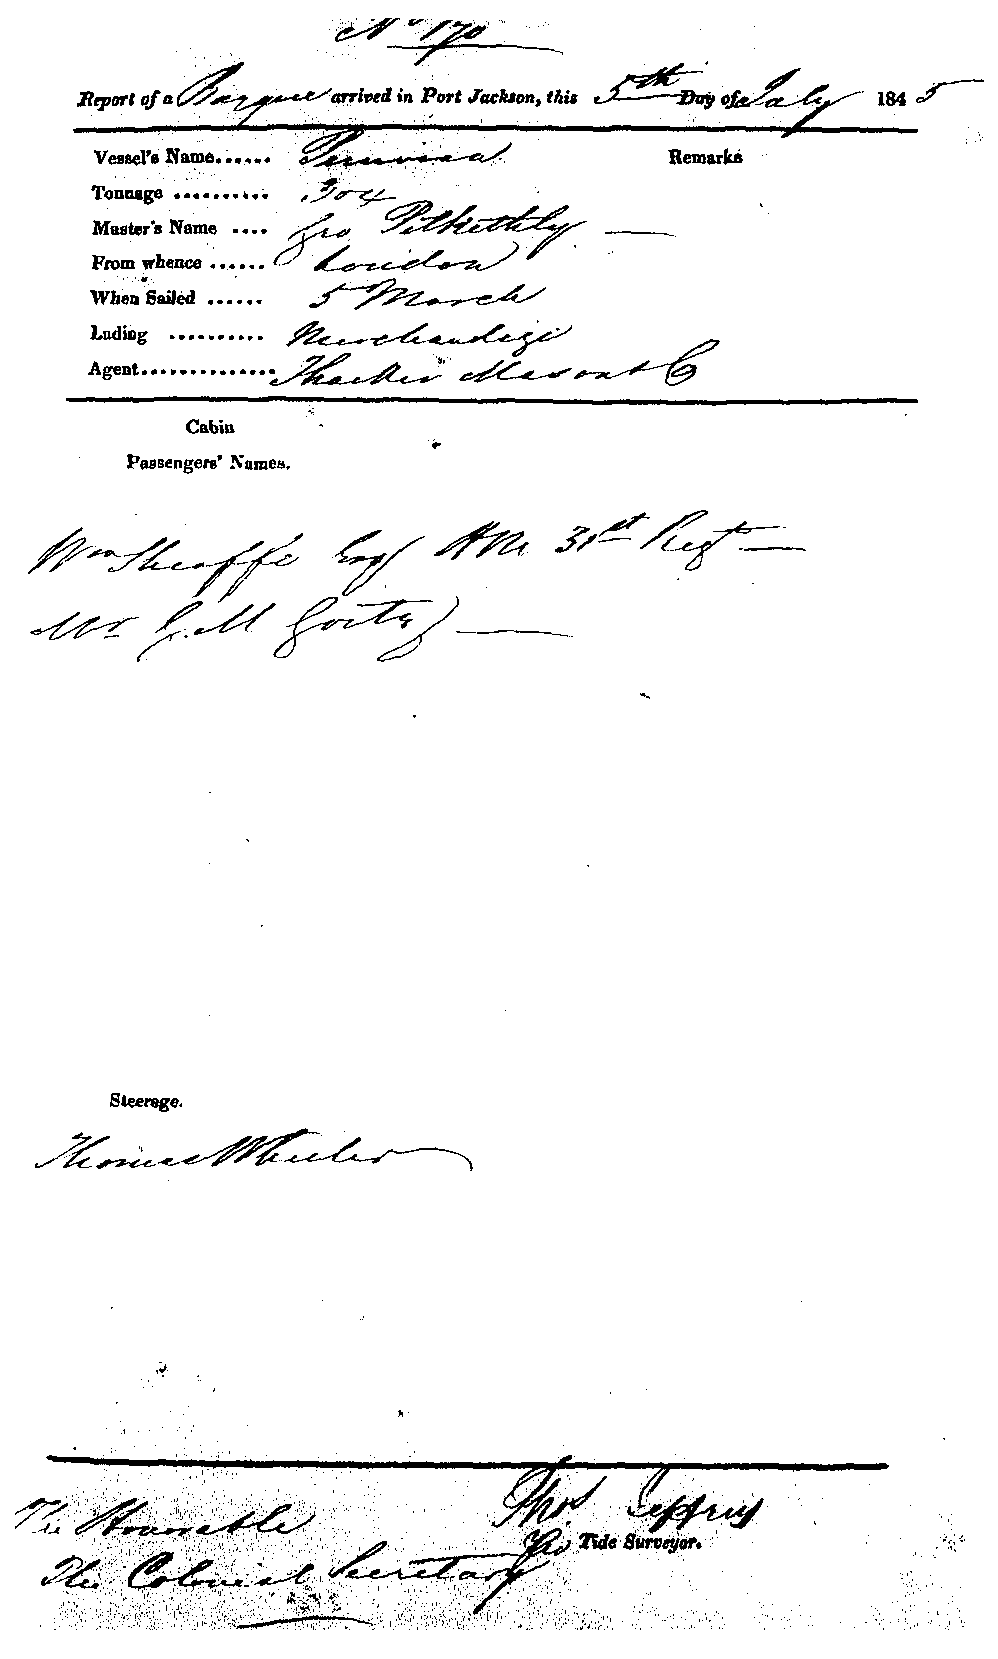 No 170
Report of a Barque arrived in Port Jackson, this 5th Day of July 1845
Vessel's Name...... 
Remarks
Tonnage .......... 304
Master's Name .... Geo Pitkethly —
From whence ...... London
When Sailed ...... 5 March
Lading .......... Merchandize
Agent.............. Thacker Mason & Co
Cabin
Passengers' Names.
Wm Sheaffe Esq HM 31st Regt —
Mr G. M —
Steerage.
Thomas Wheeler
Thos Jeffrey
The Honorable
Tide Surveyor.
The Colonial Secretary